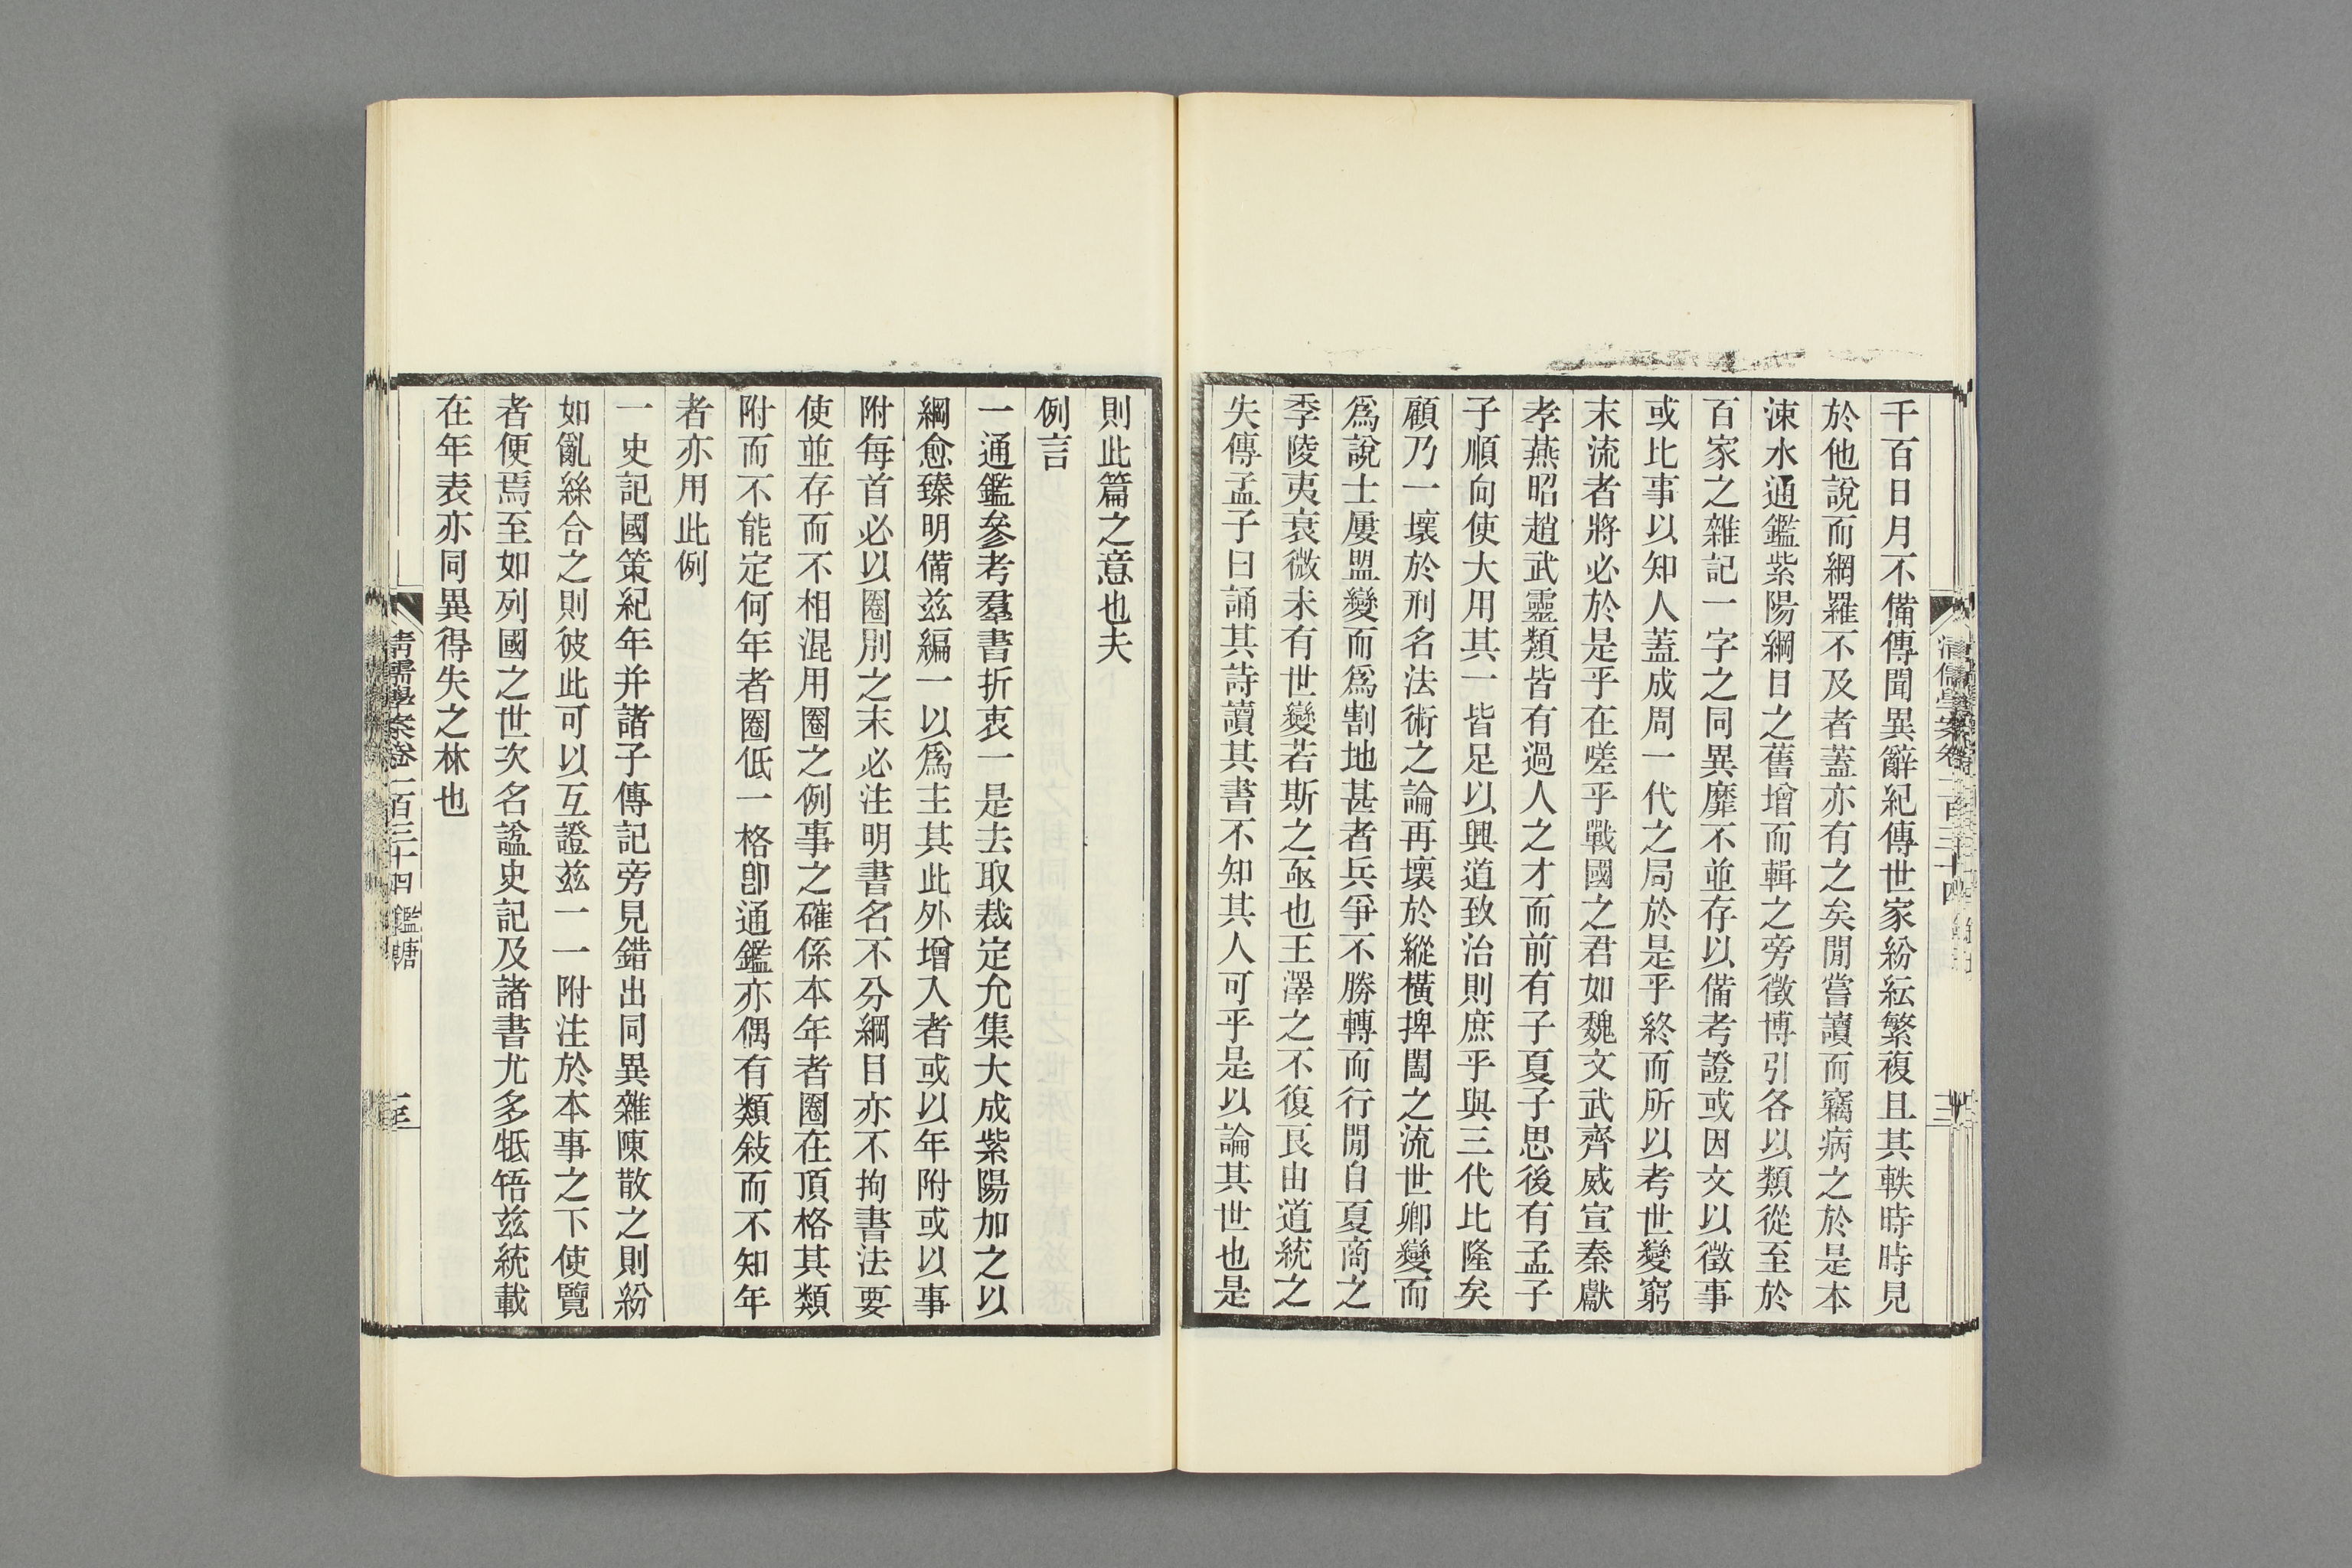 千百日月不備傳聞異辭紀傳世家紛紜繁複且其軼時時見
於他說而網羅不及者蓋亦有之矣閒嘗讀而竊病之於是本
涑水通鑑紫陽綱目之舊增而輯之旁徵博引各以類從至於
百家之雜記一字之同異靡不並存以備考證或因文以徵事
或比事以知人蓋成周一代之局於是乎終而所以考世變窮
末流者將必於是乎在嗟乎戰國之君如魏文武齊威宣秦獻
孝燕昭趙武靈類皆有過人之才而前有子夏子思後有孟子
子順向使大用其一皆足以興道致治則庶乎與三代比隆矣
顧乃一壞於刑名法術之論再壞於縱橫捭闔之流世卿變而
爲說士屢盟變而爲割地甚者兵爭不勝轉而行閒自夏商之
季陵夷衰微未有世變若斯之亟也王澤之不復良由道統之
失傳孟子曰誦其詩讀其書不知其人可乎是以論其世也是
則此篇之意也夫
例言
一通鑑參考羣書折衷一是去取裁定允集大成紫陽加之以
綱愈臻明備茲編一以爲主其此外增入者或以年附或以事
附每首必以圈別之末必注明書名不分綱目亦不拘書法要
使並存而不相混用圈之例事之確係本年者圈在頂格其類
附而不能定何年者圈低一格卽通鑑亦偶有類敍而不知年
者亦用此例
一史記國策紀年并諸子傳記旁見錯出同異雜陳散之則紛
如亂絲合之則彼此可以互證茲一一附注於本事之下使覽
者便焉至如列國之世次名諡史記及諸書尤多牴牾茲統載
在年表亦同異得失之林也
清儒學案卷一百三十四 鑑塘